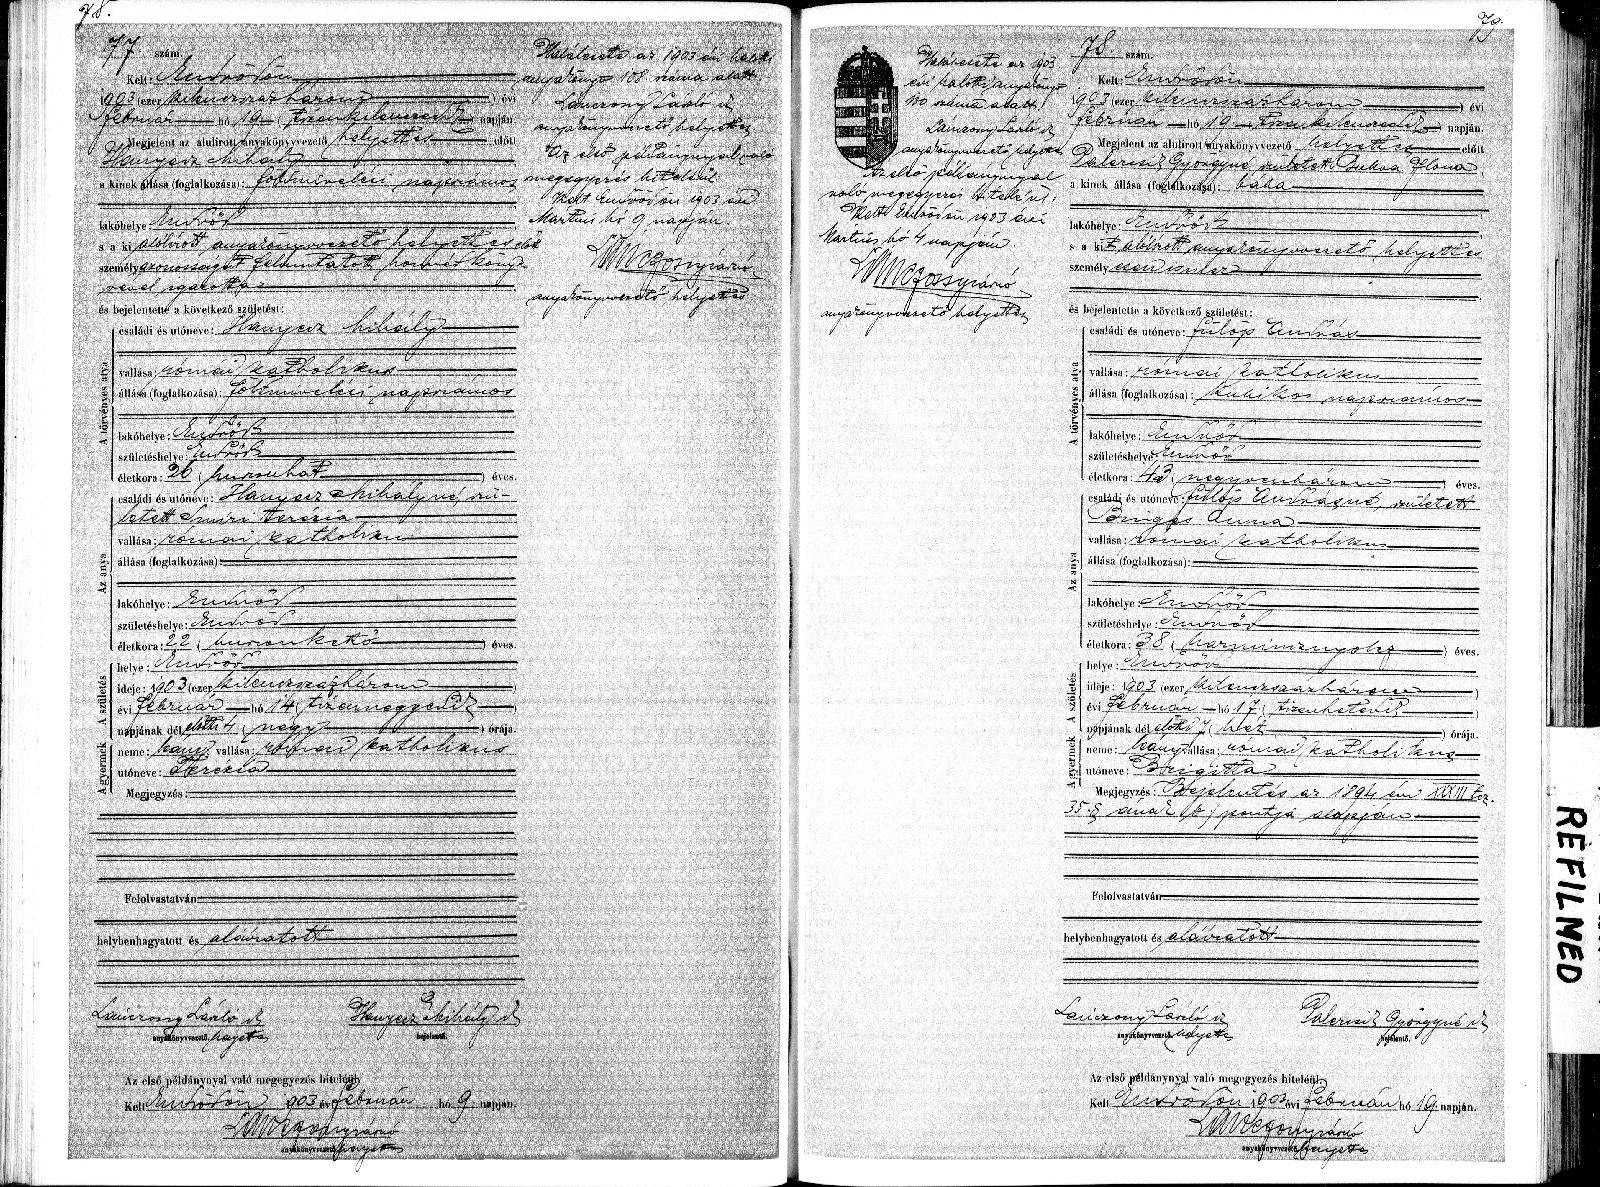 78.
77. szám.
Kelt: Endrődön
1903 (ezer kilencszázhárom) évi
február hó 19 (tizenkilencedik) napján.
Megjelent az alulirott anyakönyvvezető helyettes előtt
Hanyecz Mihály
a kinek állása (foglalkozása): földmívelési napszámos
lakóhelye: Endrőd
s a ki alólírott anyakönyvvezető helyettes előtt
személyazonosságát felmutatott
vével igazolta
és bejelentette a következő születést:
A törvényes atya
családi és utóneve: Hanyecz Mihály
vallása: római katholikus
állása (foglalkozása): földmívelési napszámos
lakóhelye: Endrőd
születéshelye: Endrőd
életkora: 26 (huszonhat) éves.
Az anya
családi és utóneve: Hanyecz Mihályné, szü-
letett Terézia
vallása: római katholikus
állása (foglalkozása):
lakóhelye: Endrőd
születéshelye: Endrőd
életkora: 22 (huszonkettő) éves.
A születés
helye: Endrőd
ideje: 1903 (ezer kilencszázhárom)
évi február hó 14 (tizennegyedik)
napjának dél előtti 4 (négy) órája.
A gyermek
neme: leány vallása: római katholikus
utóneve: Terézia
Megjegyzés:
Felolvastatván
helybenhagyatott és aláíratott
Lánczony László sk
anyakönyvvezető helyettes
Hanyecz Mihály sk
bejelentő.
Az első példánynyal való megegyezés hiteléül
Kelt Endrődön 903 évi február hó 9 napján.
anyakönyvvezető helyettes
Halálesete az 1903 évi haloti
anyakönyv 108 száma alatt.
Lánczony László sk
anyakönyvvezető helyettes
Az első példánynyal való
megegyezés hiteléül.
Kelt Endrődön 1903 évi
Martius hó 9 napján.
anyakönyvvezető helyettes
79.
Halálesete az 1903
évi haloti anyakönyv
100 száma alatt.
Lánczony László sk
anyakönyvvezető helyettes
Az első példánynyal
való megegyezés hiteléül.
Kelt Endrődön 1903 évi
Martius hó 4 napján.
anyakönyvvezető helyettes
78 szám.
Kelt: Endrődön
1903 (ezer kilencszázhárom) évi
február hó 19 tizenkilencedik napján.
Megjelent az alulirott anyakönyvvezető helyettes előtt
Palercsik Györgyné, született Dukva Ilona
a kinek állása (foglalkozása): bába
lakóhelye: Endrőd
s a kit alólírott anyakönyvvezető helyettes
személyesen ismer
és bejelentette a következő születést:
A törvényes atya
családi és utóneve: Fülöp András
vallása: római katholikus
állása (foglalkozása): kubikos napszámos
lakóhelye: Endrőd
születéshelye: Endrőd
életkora: 43 (negyvenhárom) éves.
Az anya
családi és utóneve: Fülöp Andrásné, született
Anna
vallása: római katholikus
állása (foglalkozása):
lakóhelye: Endrőd
születéshelye: Endrőd
életkora: 38 (harmincznyolcz) éves.
A születés
helye: Endrőd
ideje: 1903 (ezer kilencszázhárom)
évi február hó 17 (tizenhetedik)
napjának dél előtti 7 (hét) órája.
A gyermek
neme: leány vallása: római katholikus
utóneve: Brigitta
Megjegyzés: Bejelentés az 1894 évi XXXIII tcz.
35. § ának b) pontja alapján
Felolvastatván
helybenhagyatott és aláíratott
Lánczony László sk
anyakönyvvezető helyettes
Palercsik Györgyné sk
bejelentő.
Az első példánynyal való megegyezés hiteléül
Kelt Endrődön 1903 évi február hó 19 napján.
anyakönyvvezető helyettes
REFILMED